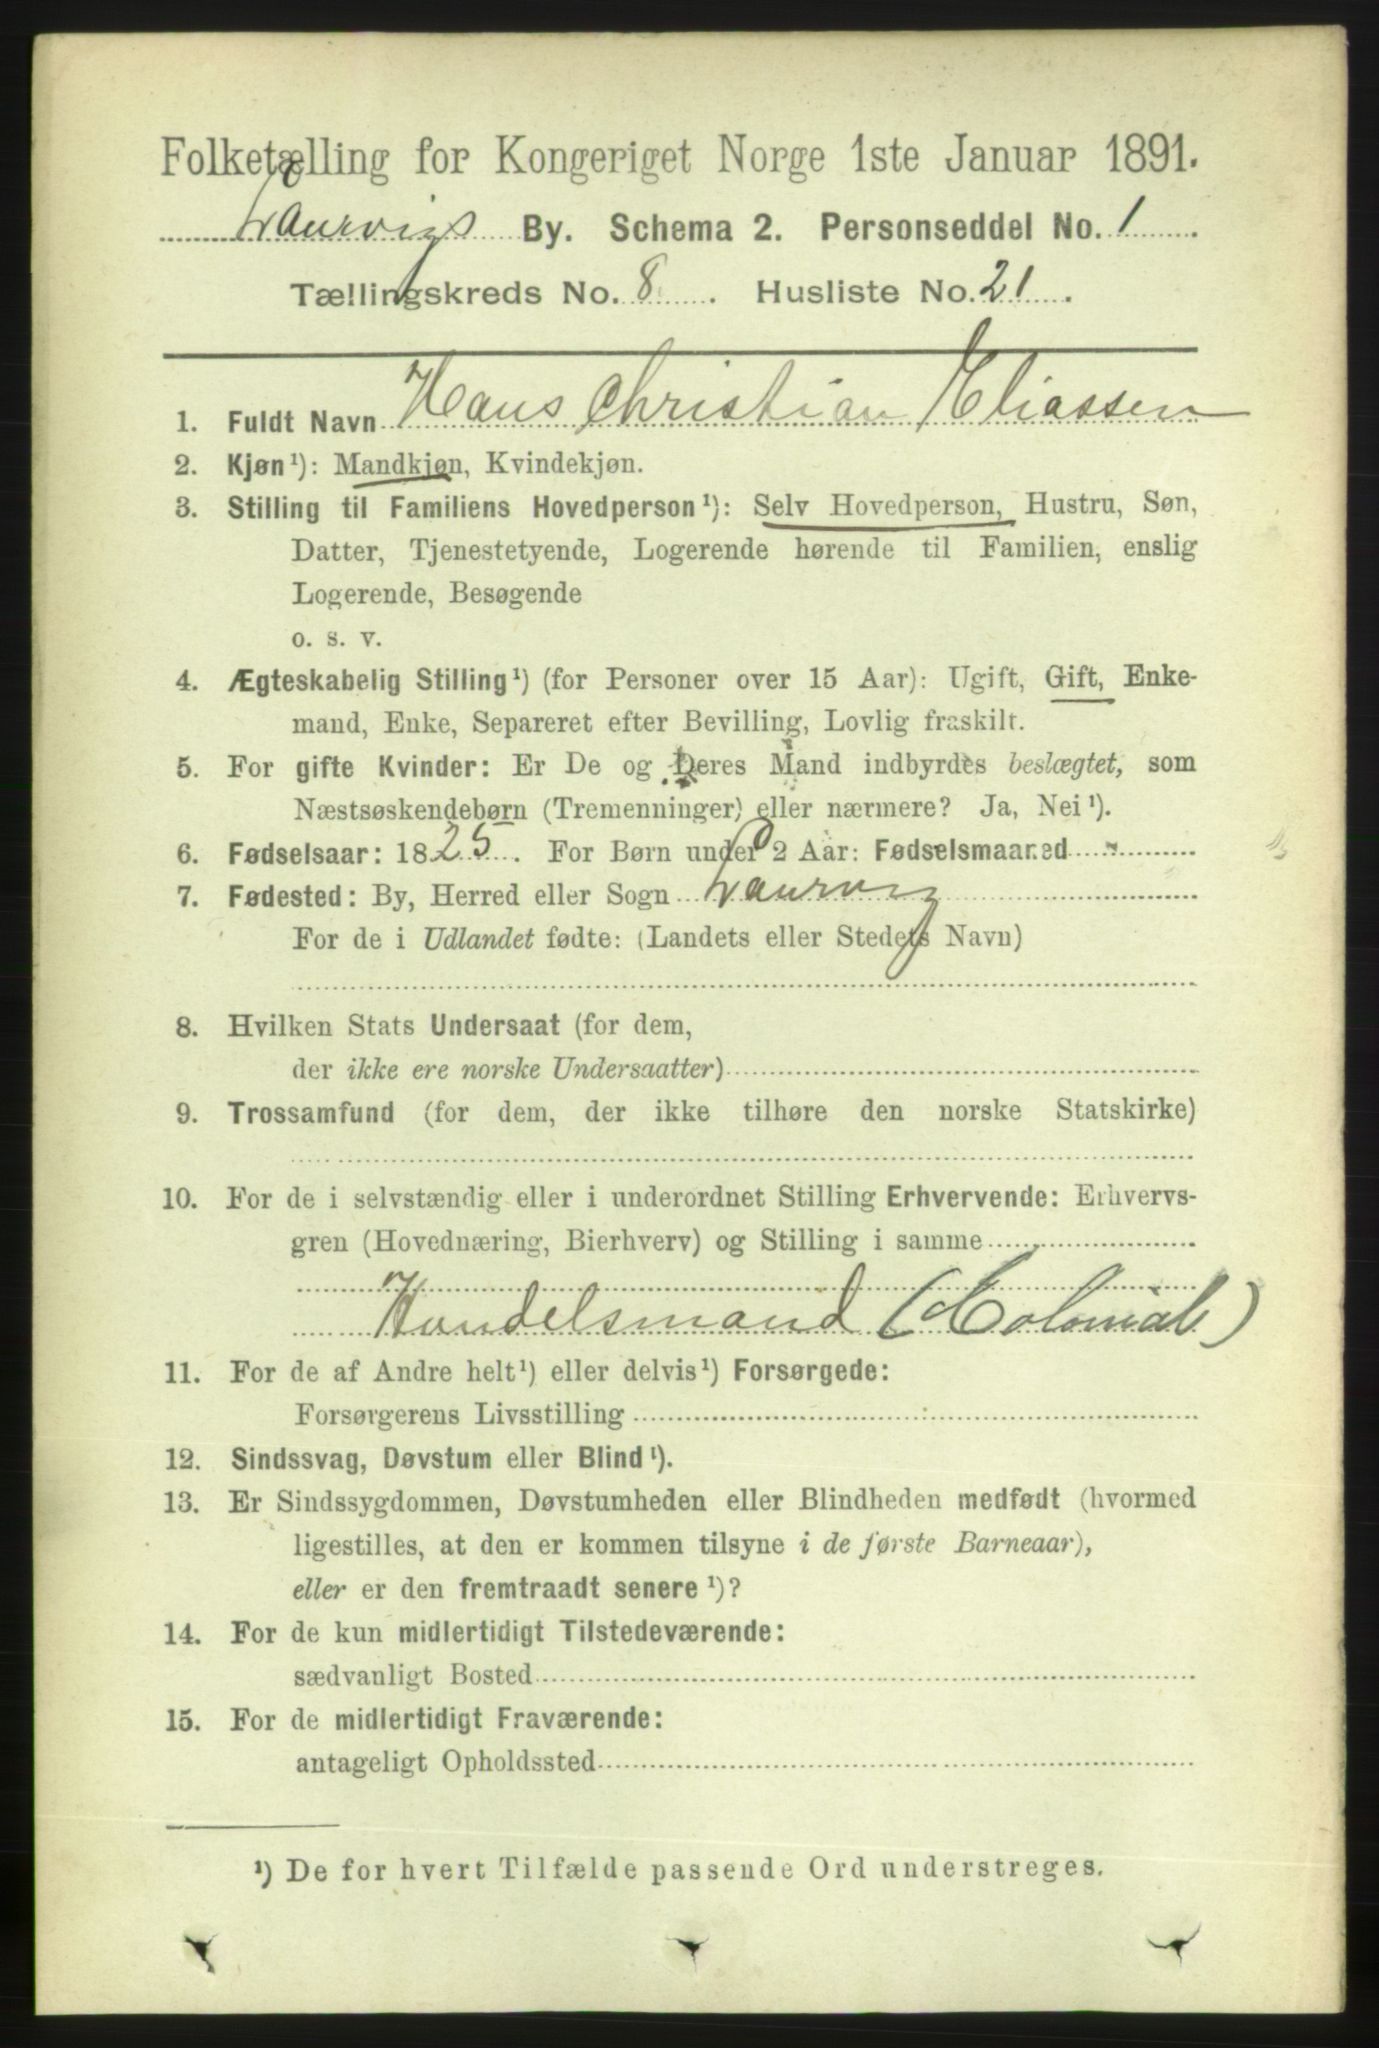 Folketælling for Kongeriget Norge 1ste Januar 1891.
Laurvigs By. Schema 2. Personseddel No. 1
Tællingskreds No. 8. Husliste No. 21.
1. Fuldt Navn Hans Christian Eliassen
2. Kjøn¹): Mandkjøn, Kvindekjøn.
3. Stilling til Familiens Hovedperson¹): Selv Hovedperson, Hustru, Søn,
Datter, Tjenestetyende, Logerende hørende til Familien, enslig
Logerende, Besøgende
o. s. v.
4. Ægteskabelig Stilling¹) (for Personer over 15 Aar): Ugift, Gift, Enke-
mand, Enke, Separeret efter Bevilling, Lovlig fraskilt.
5. For gifte Kvinder: Er De og Deres Mand indbyrdes beslægtet, som
Næstsøskendebørn (Tremenninger) eller nærmere? Ja, Nei¹).
6. Fødselsaar: 1825. For Børn under 2 Aar: Fødselsmaaned
7. Fødested: By, Herred eller Sogn Laurvig
For de i Udlandet fødte: (Landets eller Stedets Navn)
8. Hvilken Stats Undersaat (for dem,
der ikke ere norske Undersaatter)
9. Trossamfund (for dem, der ikke tilhøre den norske Statskirke)
10. For de i selvstændig eller i underordnet Stilling Erhvervende: Erhvervs-
gren (Hovednæring, Bierhverv) og Stilling i samme
Handelsmand (Colonial)
11. For de af Andre helt¹) eller delvis¹) Forsørgede:
Forsørgerens Livsstilling
12. Sindssvag, Døvstum eller Blind¹).
13. Er Sindssygdommen, Døvstumheden eller Blindheden medfødt (hvormed
ligestilles, at den er kommen tilsyne i de første Barneaar),
eller er den fremtraadt senere¹)?
14. For de kun midlertidigt Tilstedeværende:
sædvanligt Bosted
15. For de midlertidigt Fraværende:
antageligt Opholdssted
¹) De for hvert Tilfælde passende Ord understreges.